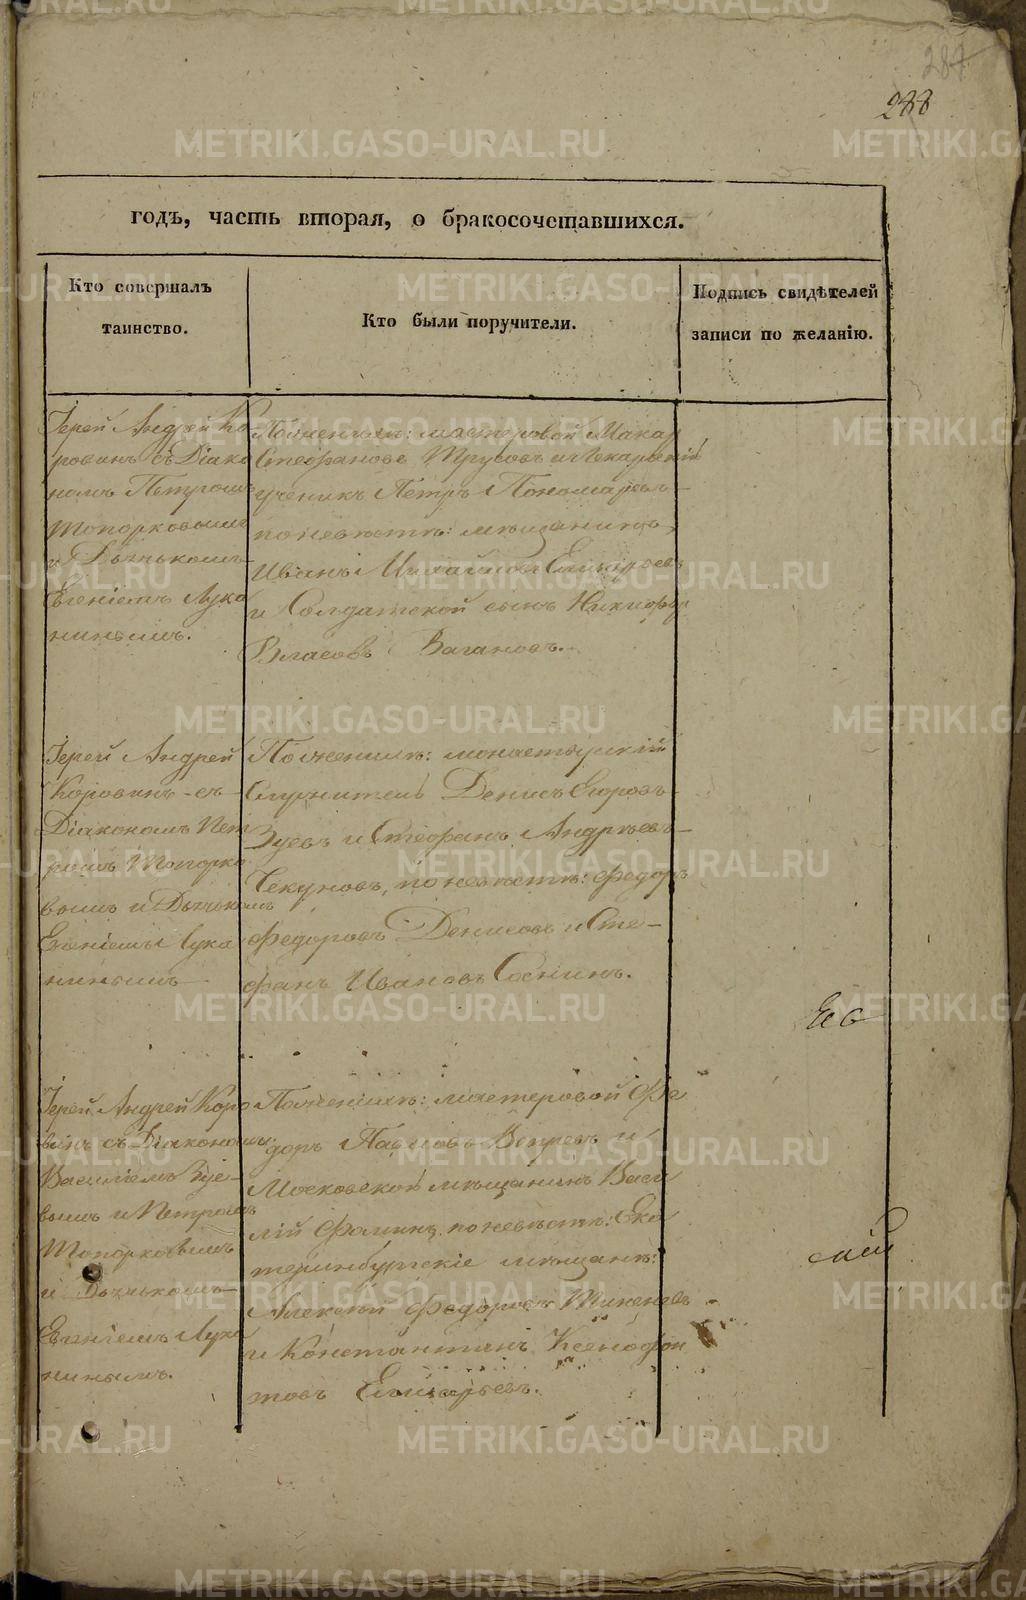 287
288
годъ, часть вторая, о бракосочетавшихся.
Кто совершалъ
таинство.
Кто были поручители.
Подпись свидѣтелей
записи по желанію.
Іерей Андрей Ко
ровинъ съ Діако
номъ Петромъ
Топорковымъ
и Дьячькомъ
Евгеніемъ Лука
нинымъ.
По женихѣ: мастеровой Макар
Стефановъ Трусовъ и Лекарскій
ученикъ Петръ Пономаревъ
по невѣстѣ: мѣщанинъ
Иванъ Михайловъ
и Солдатской сынъ Никифор
Власовъ Вагановъ.
Іерей Андрей
Коровинъ съ
Діакономъ Пет
ромъ Топорко
вымъ и Дьячькомъ
Евгеніемъ Лука
нинымъ
По женихѣ: монастырскій
Служитель Денисъ Егоровъ
Зуевъ и Стефанъ Андреевъ
Чекуновъ, по невѣстѣ: Федоръ
Федоровъ Денисовъ и Сте-
фанъ Ивановъ Соснинъ.
Іерей Андрей Коро
винъ съ Діакономъ
Василіемъ Зуе-
вымъ и Петромъ
Топорковымъ
и Дьячькомъ
Евгеніемъ Лука
нинымъ.
По женихѣ: мастеровой Фе
доръ Павловъ Вепревъ и
Московской мѣщанинъ Васи
лій Фалинъ, по невѣстѣ: Ека
теринбургскіе мѣщане:
Алексѣй Федоровъ
и Константинъ Ксенофон
товъ Елизарьевъ.
METRIKI.GASO-URAL.RU